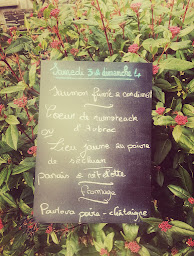 Samedi 3 & dimanche 4
Saumon fumé & condiment
Coeur de rumsteack
d'Aubrac
ou
Lieu jaune au poivre
de séchuan
panais & rôti d'été
fromage
Pavlova poire - châtaigne